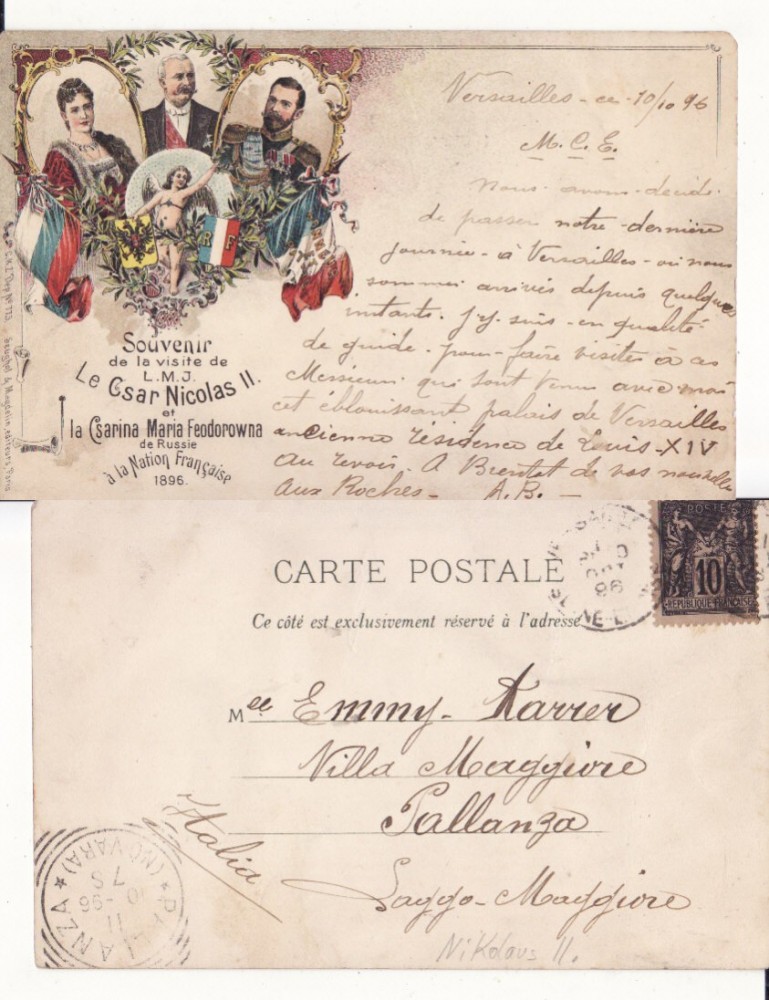 Versailles - ce - 10/10 96
M. C. E.
Nous - avons - decidé.
de passer notre - dernière
journée - à Versailles - où nous
sommes arrivés depuis quelques
instants. J'y suis - en qualité
de guide. pour - faire visiter à ces
Messieurs qui sont venus avec moi
cet éblouissant palais de Versailles
ancienne résidence de Louis - XIV
Au revoir. A Bientot de vos nouvelles
Aux Roches - A. B. -
R F
Souvenir
de la visite de
L. M. J.
Le Csar Nicolas II.
et
la Csarina Maria Feodorowna
de Russie
à la Nation Française
1896.
CARTE POSTALE
Ce côté est exclusivement réservé à l'adresse
POSTE
10
REPUBLIQUE FRANÇAISE
96
Mlle Emmy - Karrer
Villa Maggiore
Pallanza
Laggo - Maggiore
Italia
PALLANZA
(NOVARA)
11
10 - 96
7 S
Nikolaus II.